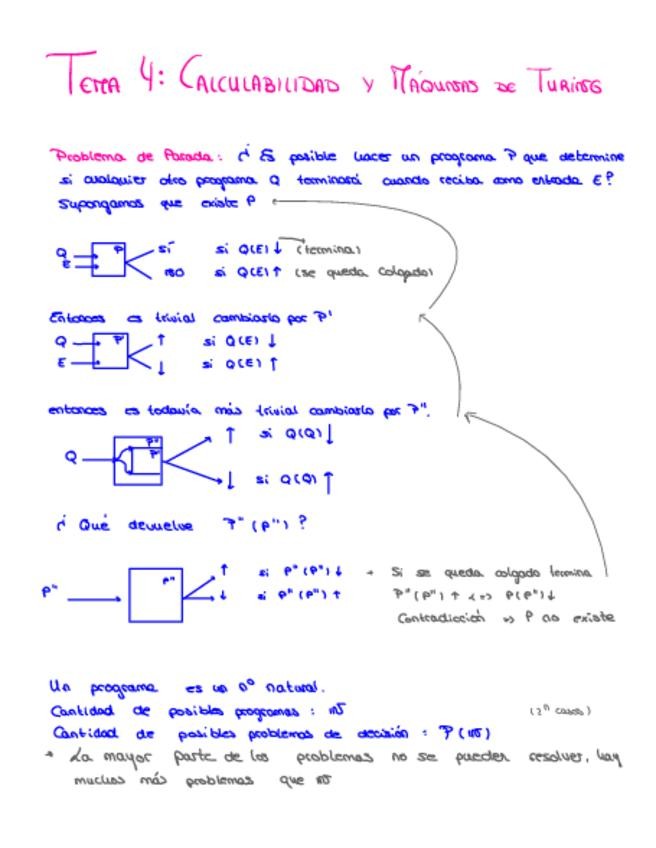 TEMA 4: CALCULABILIDAD Y MÁQUINAS DE TURING
Problema de Parada: ¿ Es posible hacer un programa P que determine
si cualquier otro programa Q terminará cuando reciba como entrada E?
Supongamos que existe P
Q
E
P
sí si Q(E) ↓ (termina)
no si Q(E) ↑ (se queda colgado)
Entonces es trivial cambiarlo por P'
Q
E
P'
↑ si Q(E) ↓
↓ si Q(E) ↑
entonces es todavía más trivial cambiarlo por P".
Q
P"
P'
↑ si Q(Q) ↓
↓ si Q(Q) ↑
¿ Qué devuelve P"(P") ?
P"
P"
↑ si P"(P") ↓ → Si se queda colgado termina
↓ si P"(P") ↑ P"(P") ↑ <=> P(P") ↓
Contradicción => P no existe
Un programa es un nº natural.
Cantidad de posibles programas : ℕ (2ⁿ casos)
Cantidad de posibles problemas de decisión : P(ℕ)
* La mayor parte de los problemas no se pueden resolver, hay
muchos más problemas que ℕ